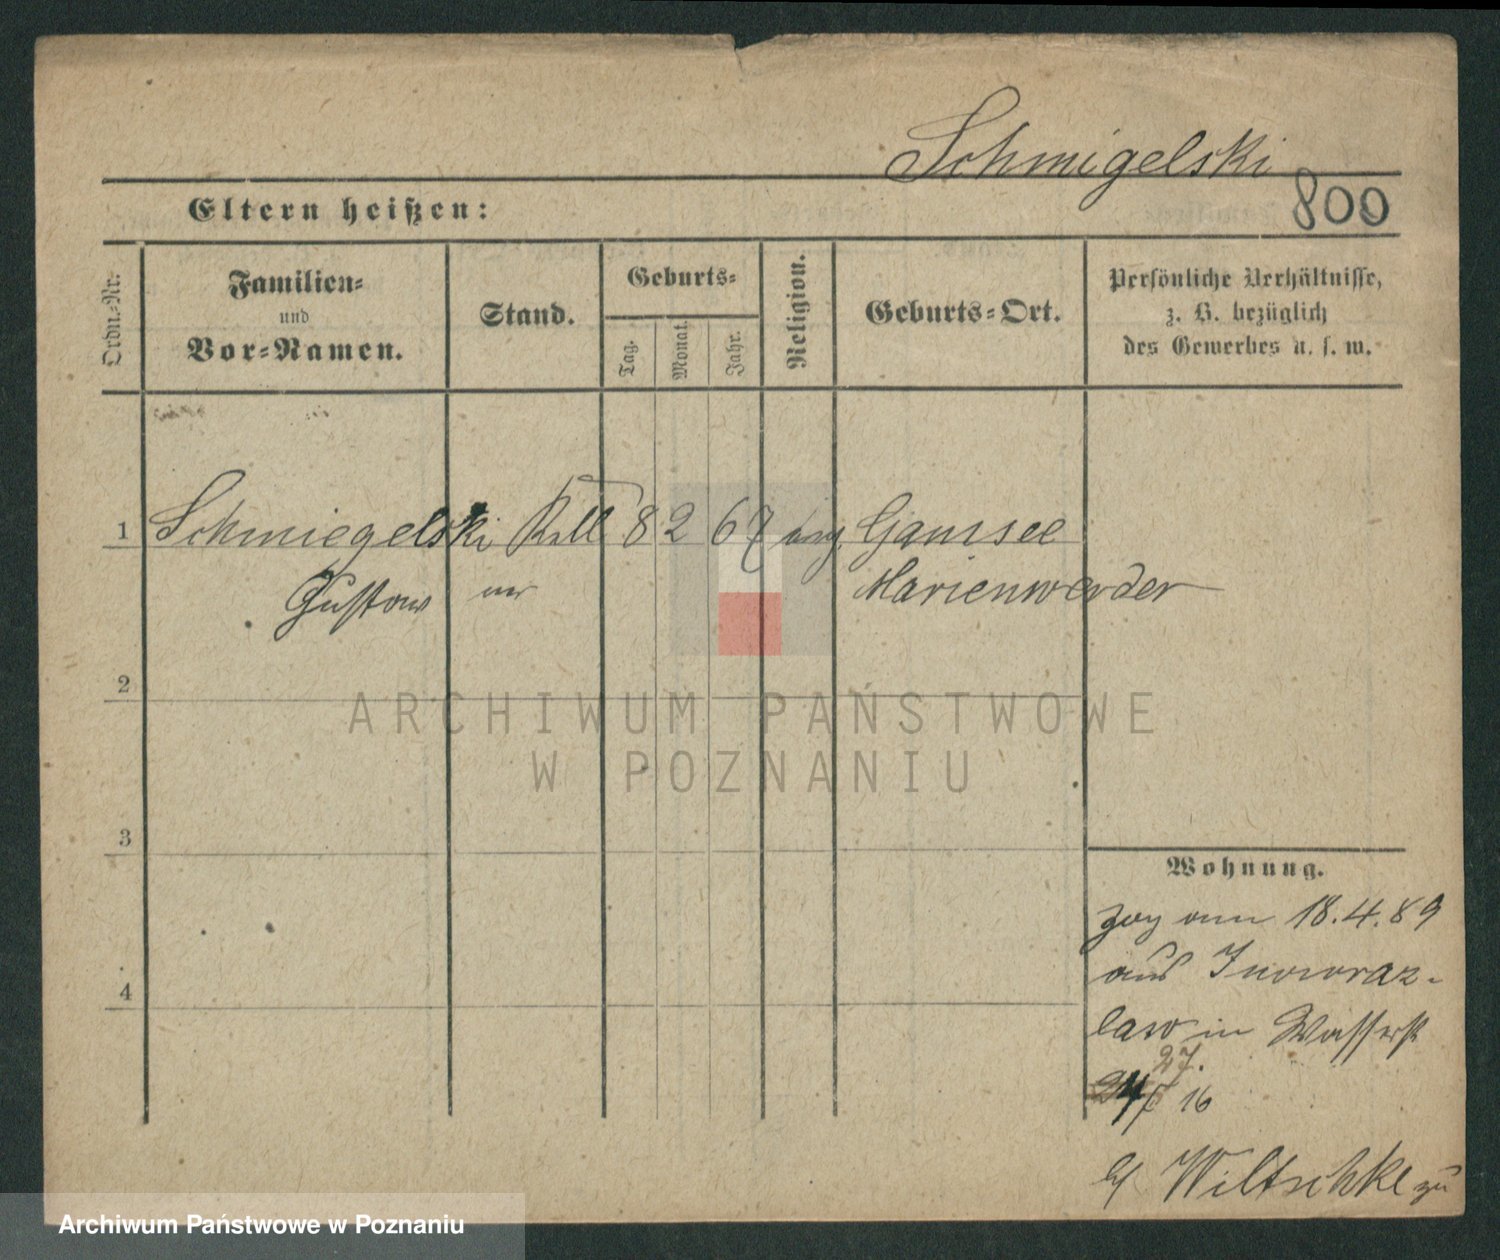 Schmigelski
800
Eltern heißen:
Ordn.-Nr.
Familien-
und
Vor-Namen.
Stand.
Geburts-
Tag.
Monat.
Jahr.
Religion.
Geburts-Ort.
Persönliche Verhältnisse,
z. B. bezüglich
des Gewerbes u. s. w.
1 Schmiegelski Kell 8 2 67 evg. Garnsee
Gustav ner Marienwerder
2
3
4
Wohnung.
zog am 18.4.89
aus Inowraz-
law in Wasserst
27.
16
b/ Wiltschke zu
ARCHIWUM PAŃSTWOWE
W POZNANIU
Archiwum Państwowe w Poznaniu